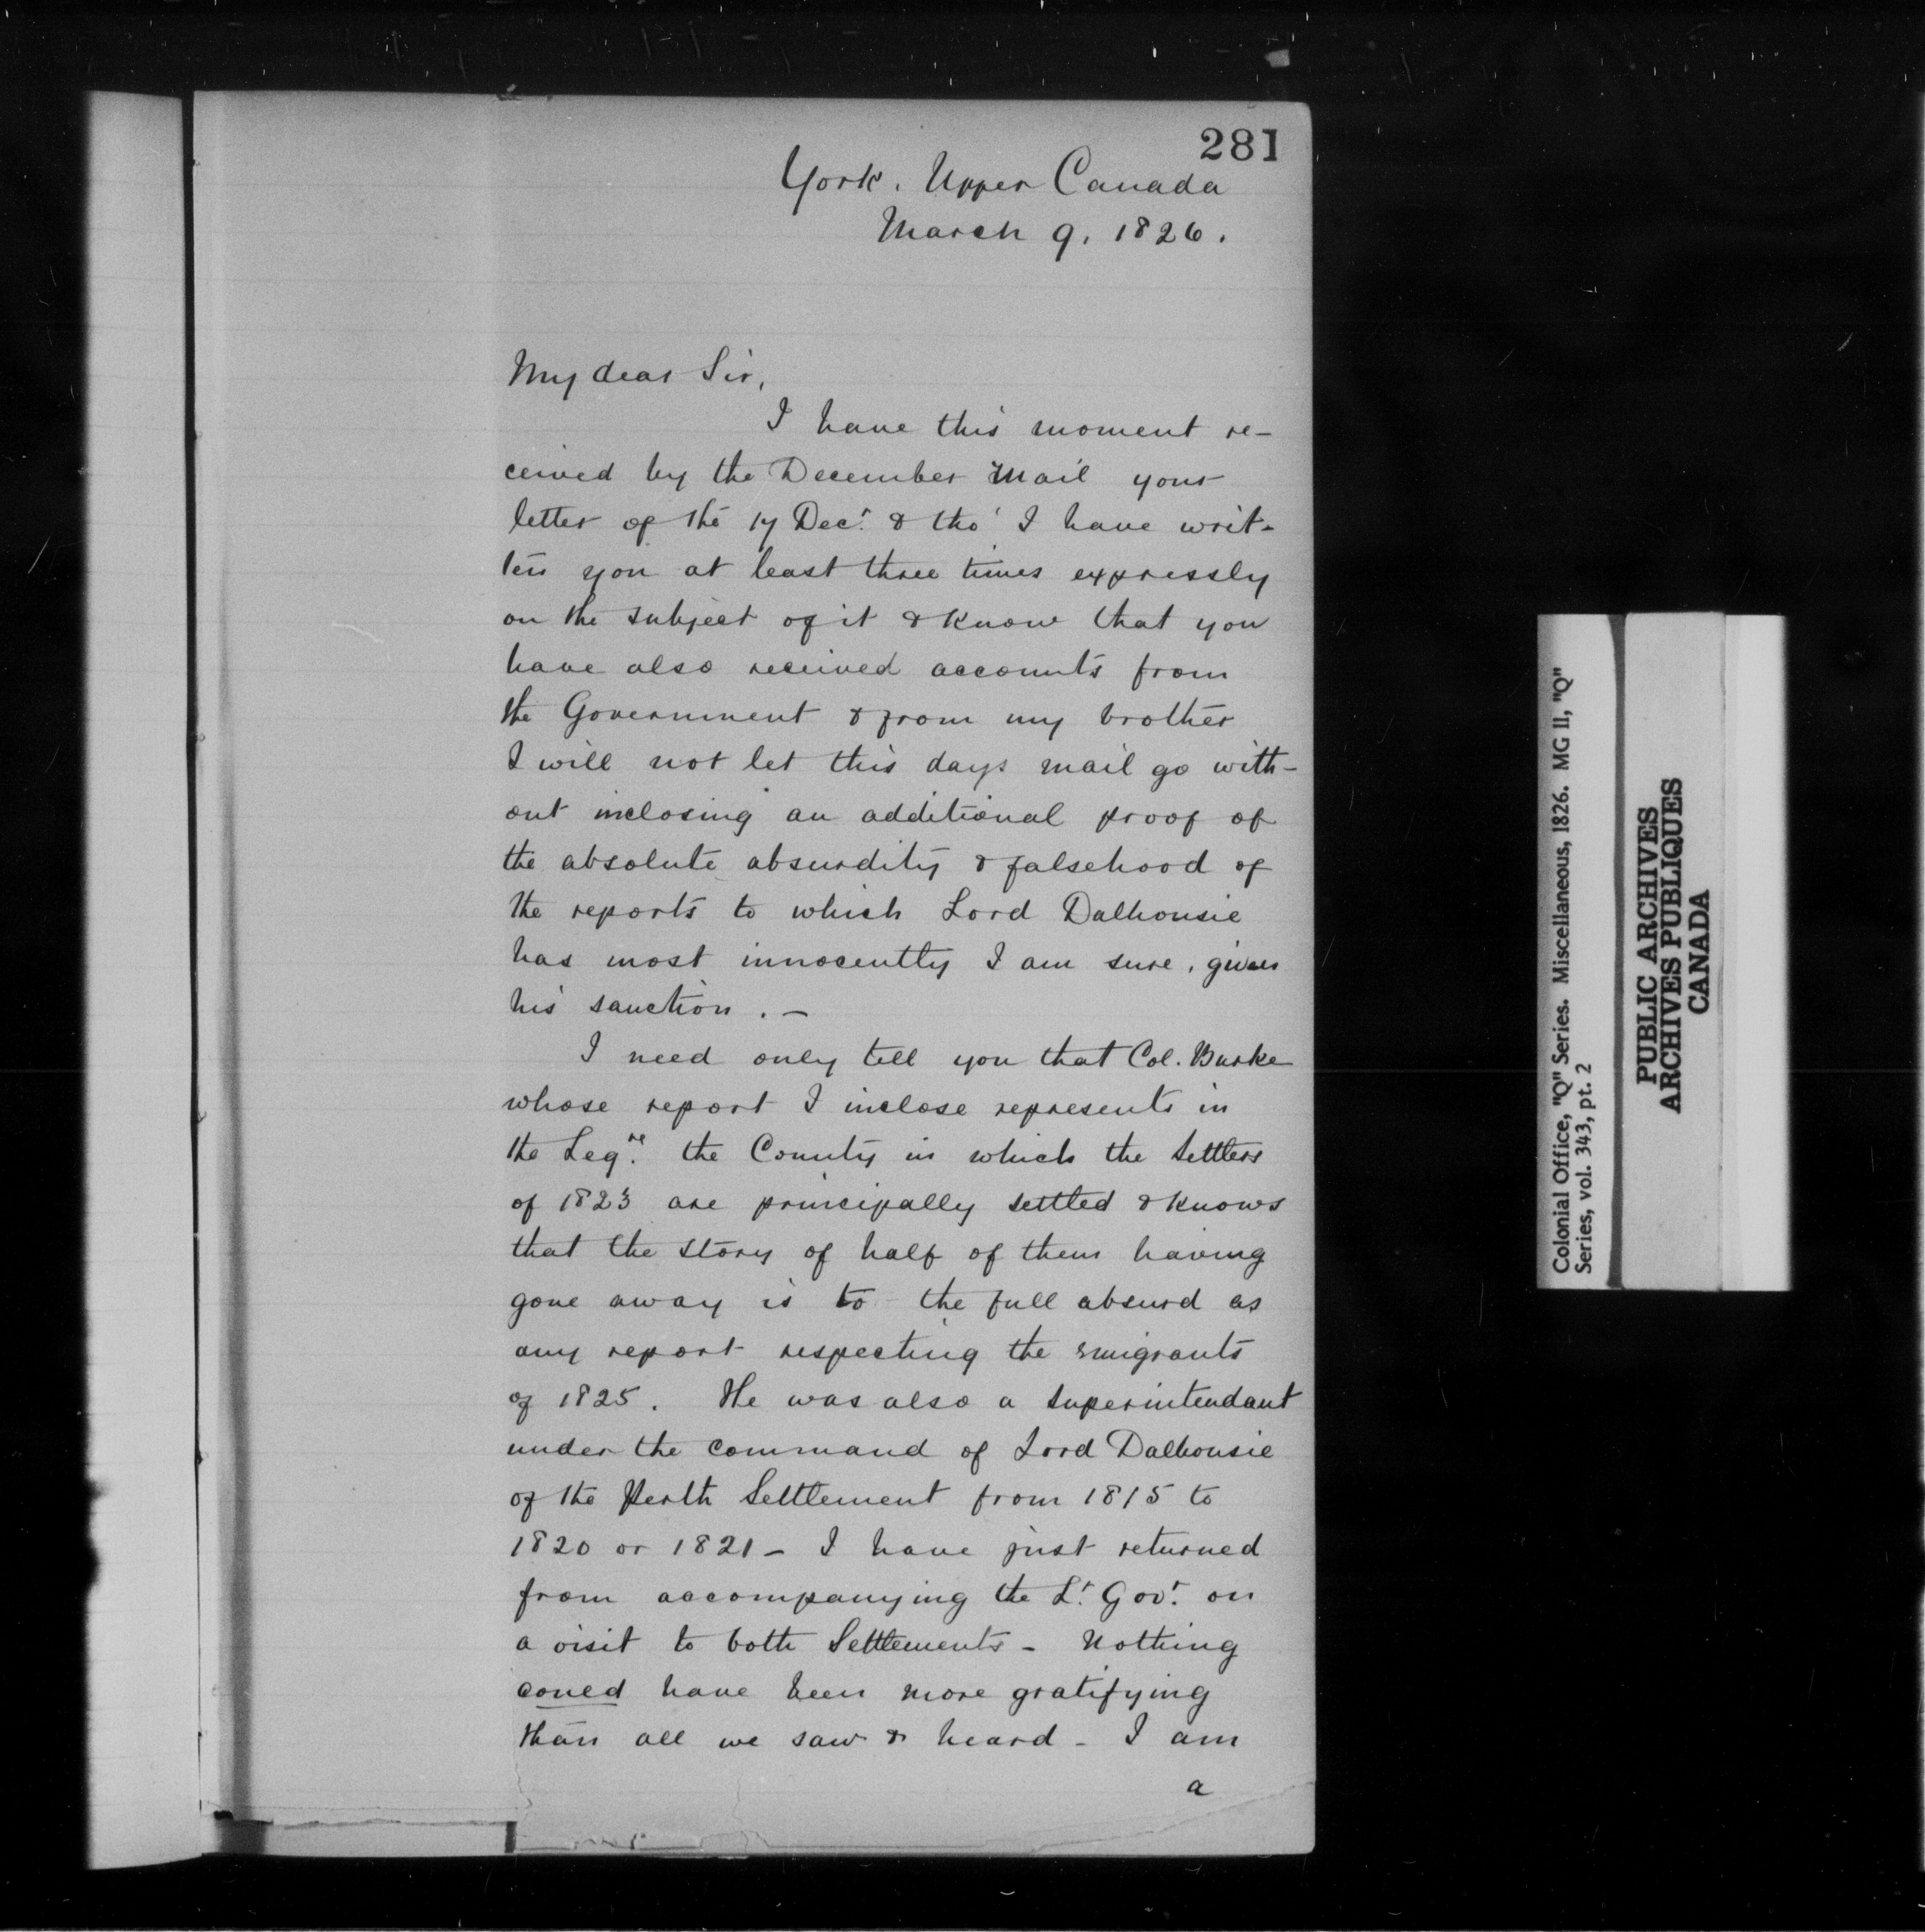 281
York. Upper Canada
March 9. 1826.
My dear Sir,
I have this moment re-
ceived by the December Mail your
letter of the 17 Decr. & tho' I have writ-
ten you at least three times expressly
on the subject of it & know that you
have also received accounts from
the Government & from my brother
I will not let this days mail go with-
out inclosing an additional proof of
the absolute absurdity & falsehood of
the reports to which Lord Dalhousie
has most innocently I am sure, given
his sanction. -
I need only tell you that Col. Burke
whose report I inclose represents in
the Legre. the County in which the Settlers
of 1823 are principally settled & knows
that the story of half of them having
gone away is to the full absurd as
any report respecting the emigrants
of 1825. He was also a superintendant
under the command of Lord Dalhousie
of the Perth Settlement from 1815 to
1820 or 1821 - I have just returned
from accompanying the Lt. Govr. on
a visit to both Settlements - Nothing
coued have been more gratifying
than all we saw & heard - I am
a
Colonial Office, "Q" Series. Miscellaneous, 1826. MG 11, "Q"
Series, vol. 343, pt. 2
PUBLIC ARCHIVES
ARCHIVES PUBLIQUES
CANADA